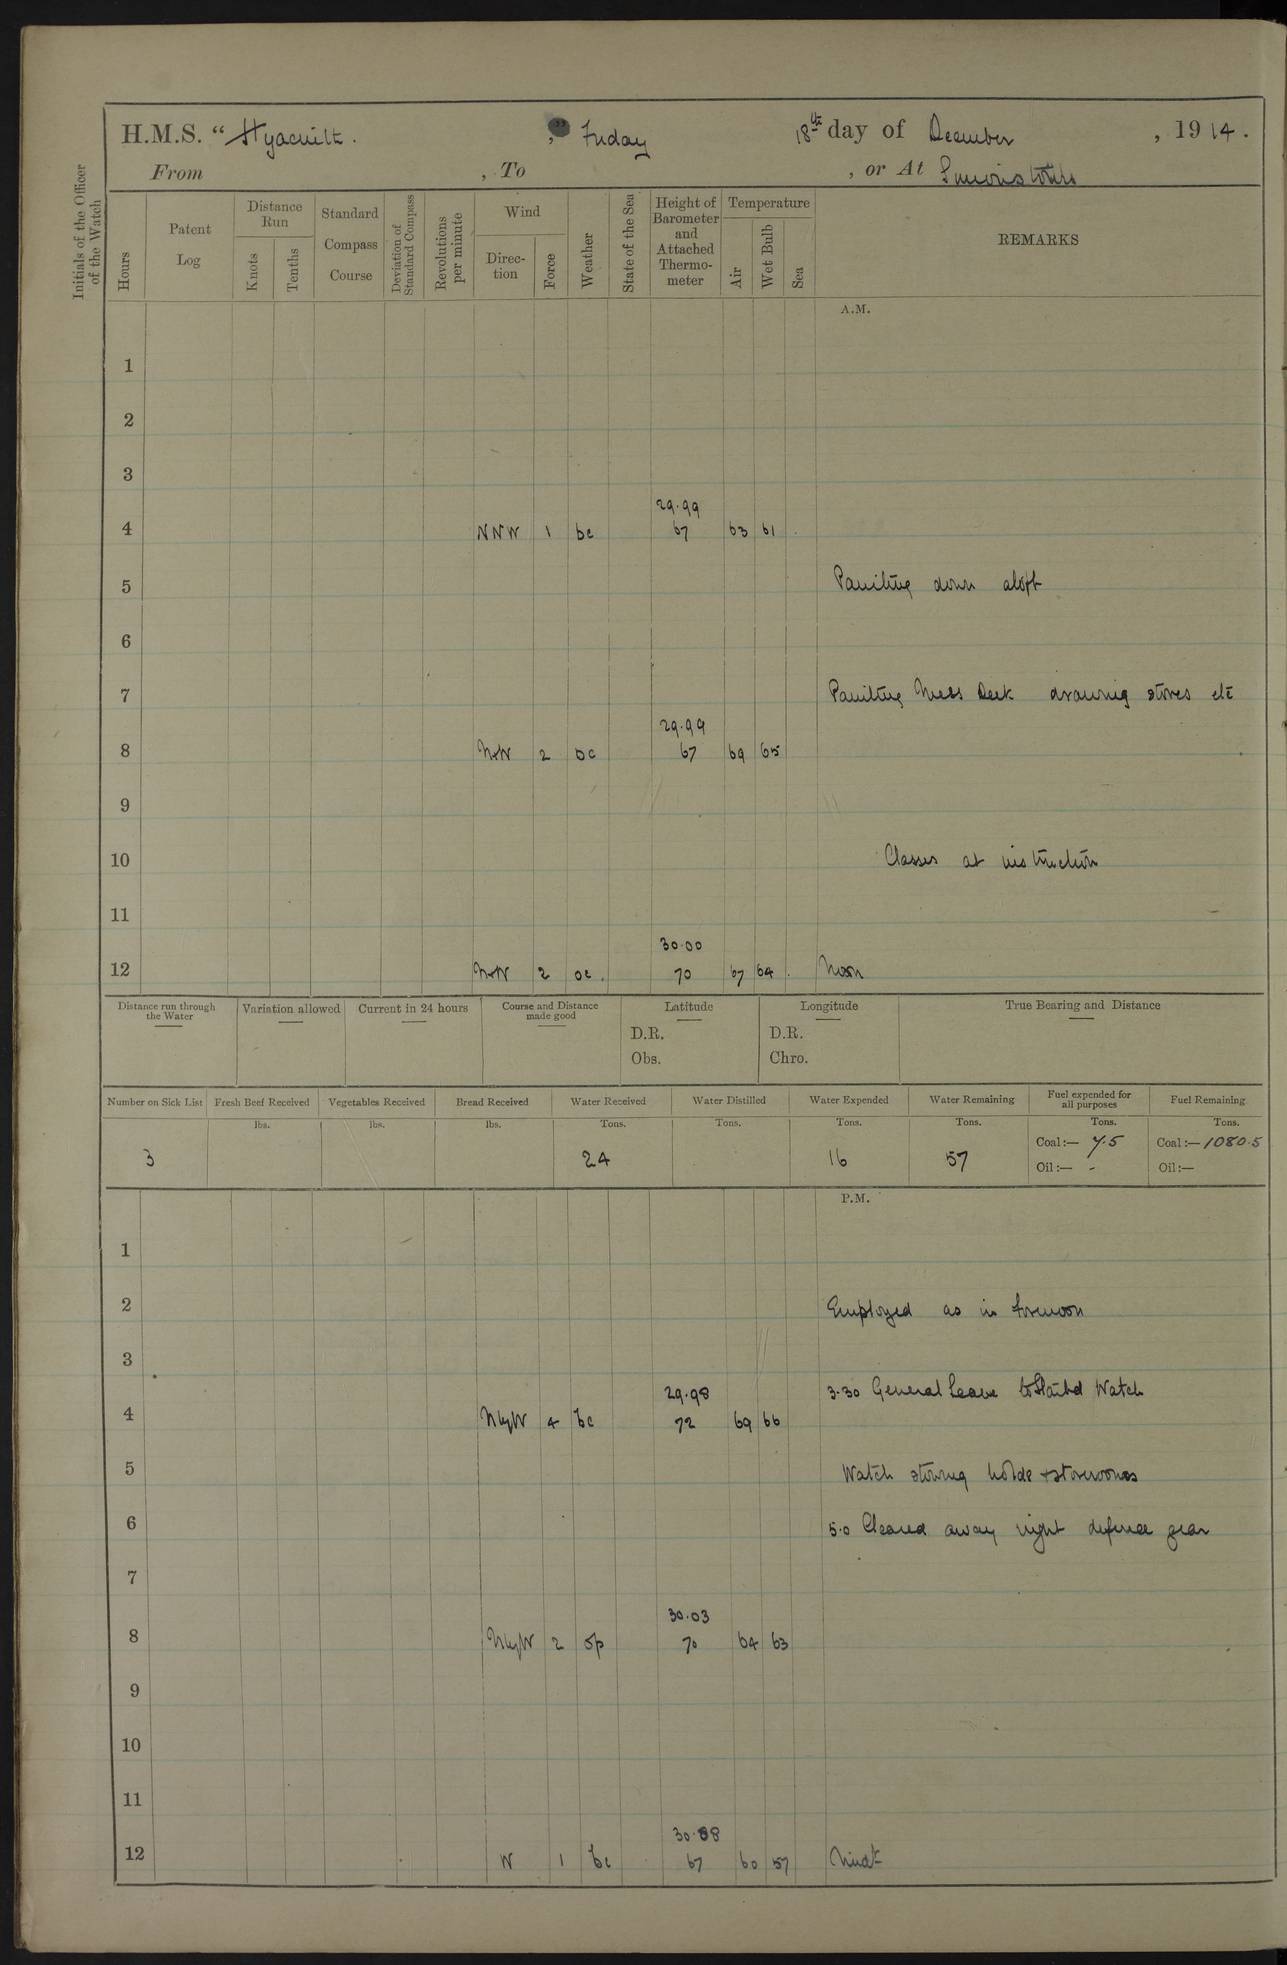 H.M.S. “Hyacinth.„ Friday 18th day of December, 1914.
From , To , or At Simonstown
Initials of the Officer of the Watch
Hours
Patent Log
Distance Run
Knots
Tenths
Standard Compass Course
Deviation of Standard Compass
Revolutions per minute
Wind
Direction
Force
Weather
State of the Sea
Height of Barometer and Attached Thermometer
Temperature
Air
Wet Bulb
Sea
REMARKS
A.M.
1
2
3
29.99
4 NNW 1 bc 67 63 61
5 Painting down aloft
6
7 Painting Mess Deck drawing stores etc
29.99
8 2 oc 67 69 65
9
10 Classes at instruction
11
30.00
12 2 oc. 70 67 64 Noon
Distance run through the Water
Variation allowed
Current in 24 hours
Course and Distance made good
Latitude
D.R.
Obs.
Longitude
D.R.
Chro.
True Bearing and Distance
Number on Sick List Fresh Beef Received Vegetables Received Bread Received Water Received Water Distilled Water Expended Water Remaining Fuel expended for all purposes Fuel Remaining
lbs. lbs. lbs. Tons. Tons. Tons. Tons. Tons. Tons.
3 24 16 57 Coal:— 7.5 Coal:— 1080.5
Oil:— - Oil:—
P.M.
1
2 Employed as in forenoon
3
29.98 3.30 General Leave to Starbd Watch
4 NbyW 4 bc 72 69 66
5 Watch stowing holds + storerooms
6 5.0 Cleared away night defence gear
7
30.03
8 NbyW 2 op 70 64 63
9
10
11
30.08
12 W 1 bc 67 60 57 Midt